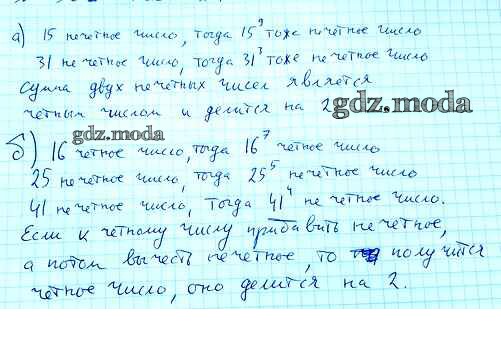 а) 15 нечетное число, тогда 15⁹ тоже нечетное число
31 нечетное число, тогда 31³ тоже нечетное число
сумма двух нечетных чисел является
четным числом и делится на 2
gdz.moda
gdz.moda
б) 16 четное число, тогда 16⁷ четное число
25 нечетное число, тогда 25⁵ нечетное число
41 нечетное число, тогда 41⁴ нечетное число.
Если к четному числу прибавить нечетное,
а потом вычесть нечетное, то получится
четное число, оно делится на 2.